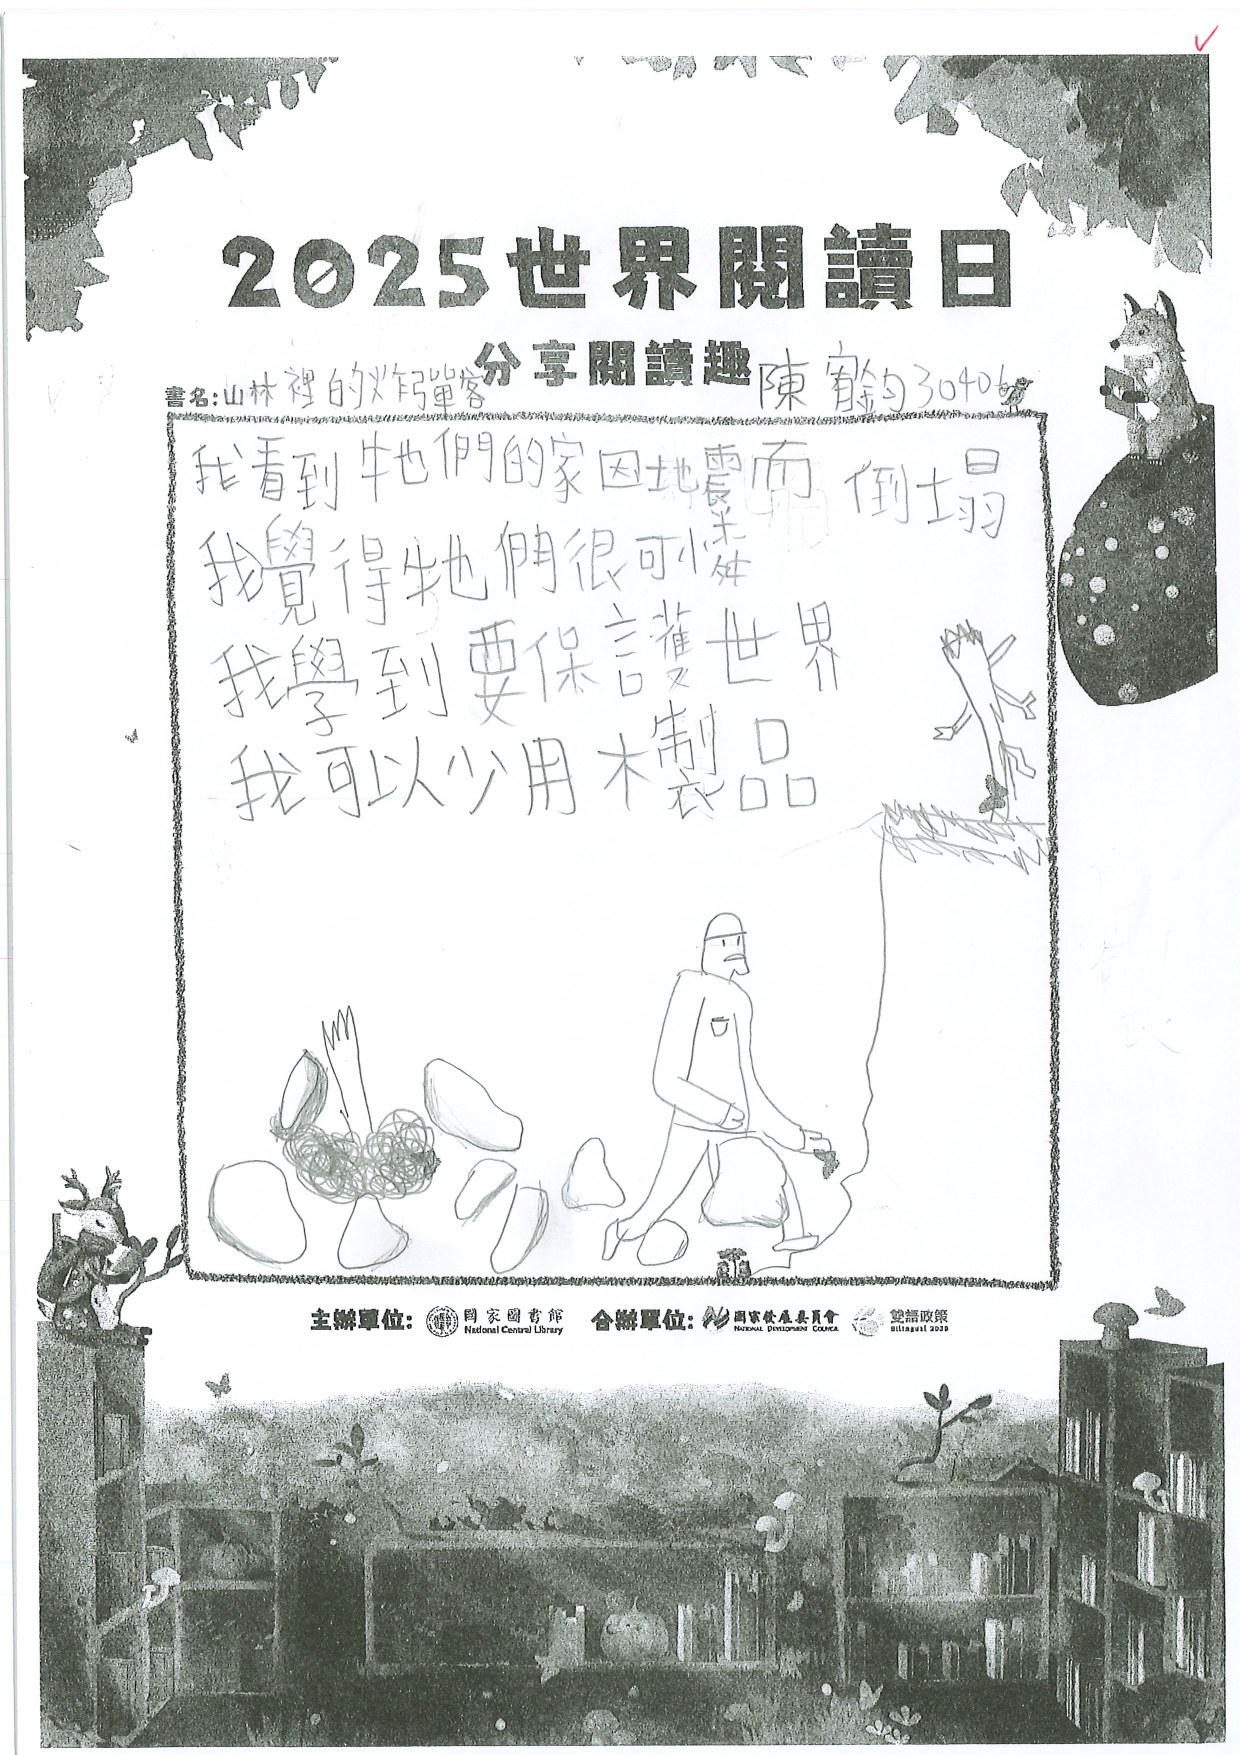 2025世界閱讀日
分享閱讀趣
書名:山林裡的炸彈客 陳宥鈞30406
我看到牠們的家因地震而倒塌
我覺得牠們很可憐
我學到要保護世界
我可以少用木製品
主辦單位: 國家圖書館 National Central Library 合辦單位: 國家發展委員會 NATIONAL DEVELOPMENT COUNCIL 雙語政策 Bilingual 2030